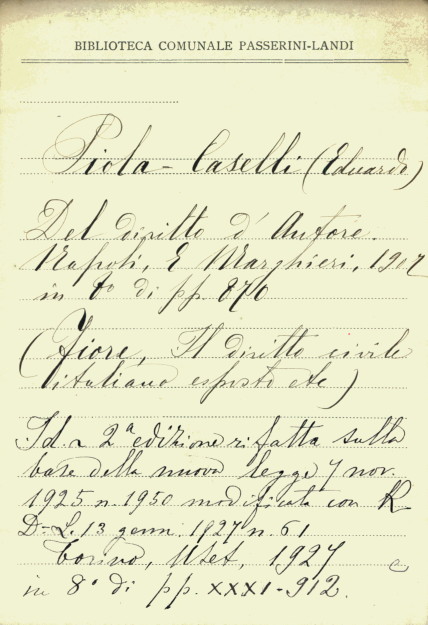 BIBLIOTECA COMUNALE PASSERINI-LANDI
Piola-Caselli (Eduardo)
Del diritto d'Autore.
Napoli, E Marghieri, 1907
in 8° di pp. 870
(Fiore, Il diritto civile
italiano esposto etc)
Id. - 2ª edizione rifatta sulla
base della nuova legge 7 nov.
1925 n. 1950 modificata con R
D-L. 13 genn. 1927 n. 61
Torino, Utet, 1927
in 8° di pp. XXXI-912.